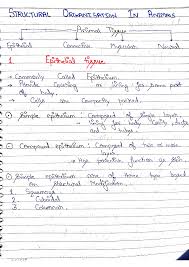 STRUCTURAL ORGANISATION IN ANIMALS
Animal Tissue
Epithelial Connective Muscular Neural
1 Epithelial tissue
→ Commonly Called Epithelium.
→ Provide Covering or lining for some part of body.
→ Cells are compactly packed
① Simple epithelium: Composed of single layer
lining for body cavity, ducts and tubes
② Compound epithelium: Composed of two or more layer
→ Has protective function as skin
① Simple epithelium are of three type based on structural modification.
1. Squamous
2. Cuboidal
3. Columnar